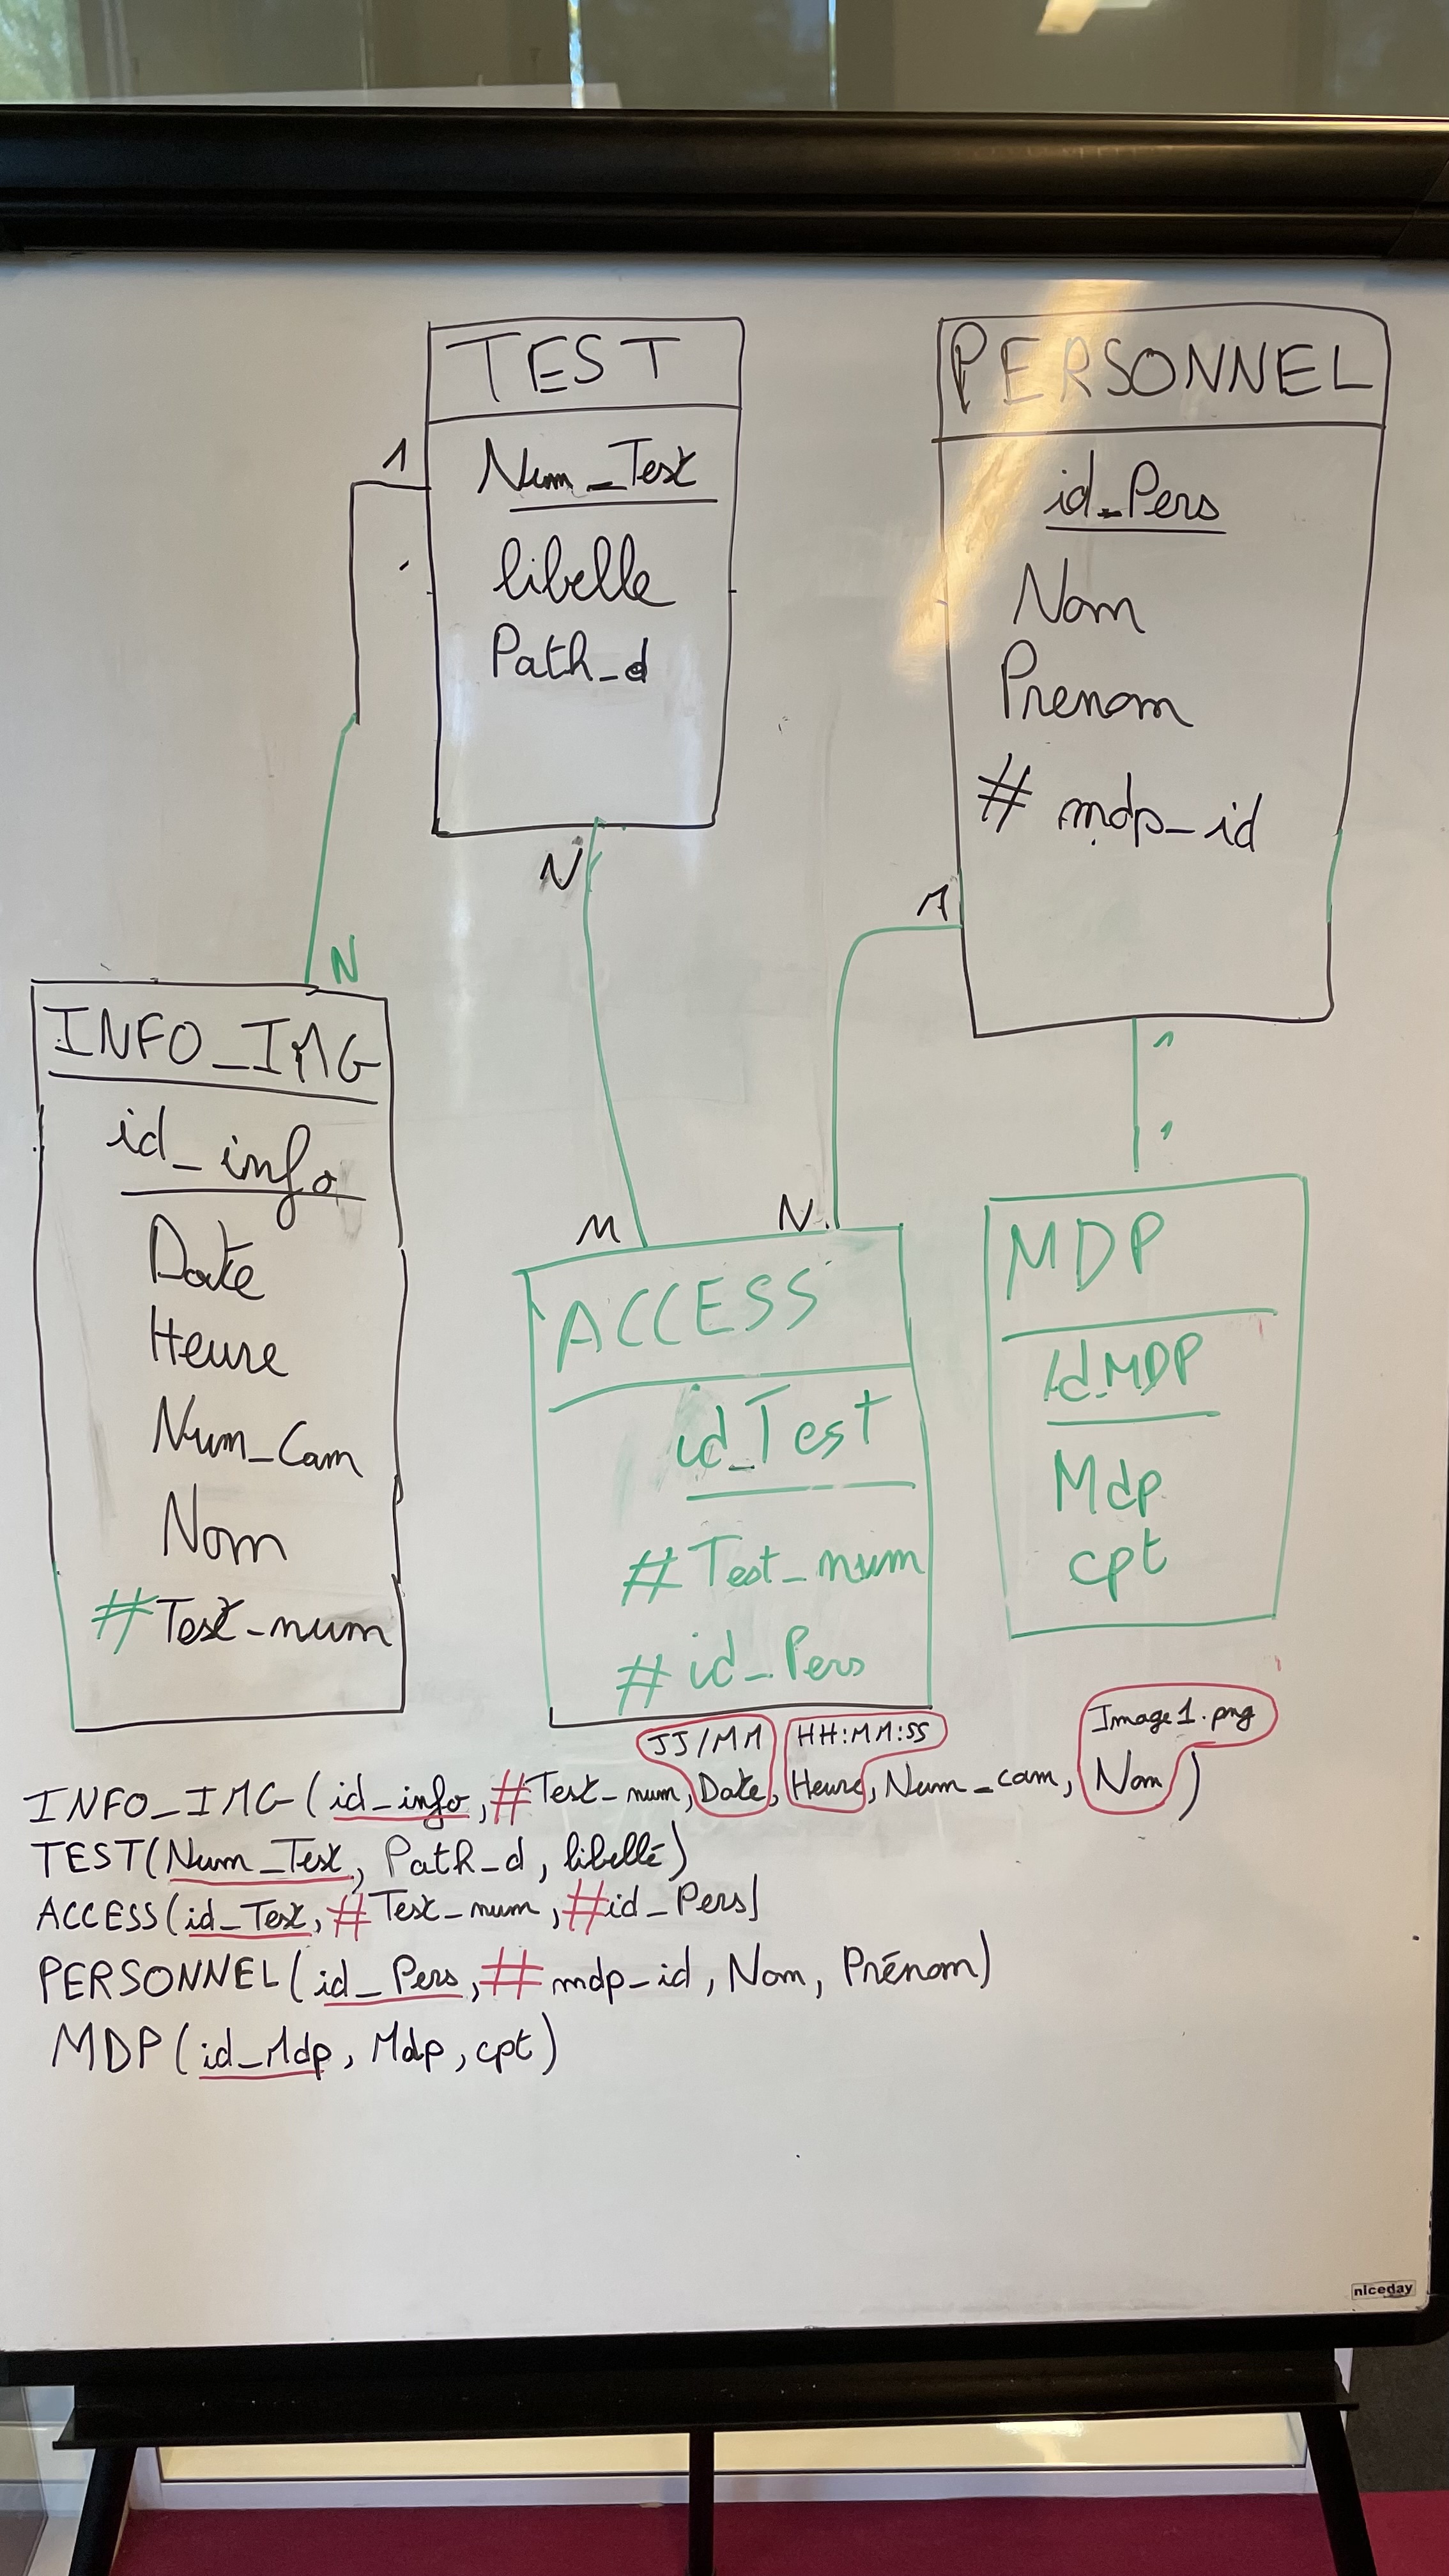 TEST
1
Num_Test
libelle
Path_d
N
PERSONNEL
id_Pers
Nom
Prenom
# mdp_id
1
N
INFO_IMG
id_info
Date
Heure
Num_Cam
Nom
#Test-num
M
N
ACCESS
id_Test
#Test_num
#id_Pers
1
1
MDP
id_MDP
Mdp
cpt
JJ/MM HH:MM:SS Image1.png
INFO_IMG(id_info, #Test_num, Date, Heure, Num_cam, Nom)
TEST(Num_Test, Path_d, libellé)
ACCESS(id_Test, #Test_num, #id_Pers)
PERSONNEL(id_Pers, # mdp_id, Nom, Prénom)
MDP(id_Mdp, Mdp, cpt)
niceday